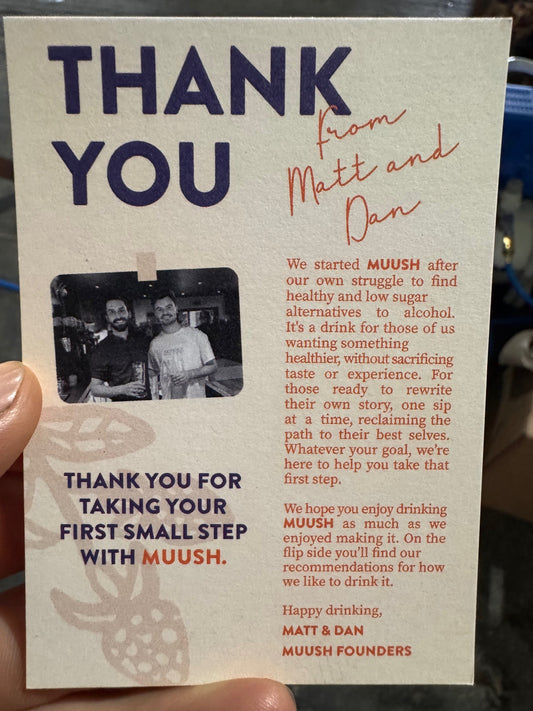 THANK
YOU
from
Matt and
Dan
We started MUUSH after
our own struggle to find
healthy and low sugar
alternatives to alcohol.
It's a drink for those of us
wanting something
healthier, without sacrificing
taste or experience. For
those ready to rewrite
their own story, one sip
at a time, reclaiming the
path to their best selves.
Whatever your goal, we're
here to help you take that
first step.
We hope you enjoy drinking
MUUSH as much as we
enjoyed making it. On the
flip side you'll find our
recommendations for how
we like to drink it.
Happy drinking,
MATT & DAN
MUUSH FOUNDERS
THANK YOU FOR
TAKING YOUR
FIRST SMALL STEP
WITH MUUSH.